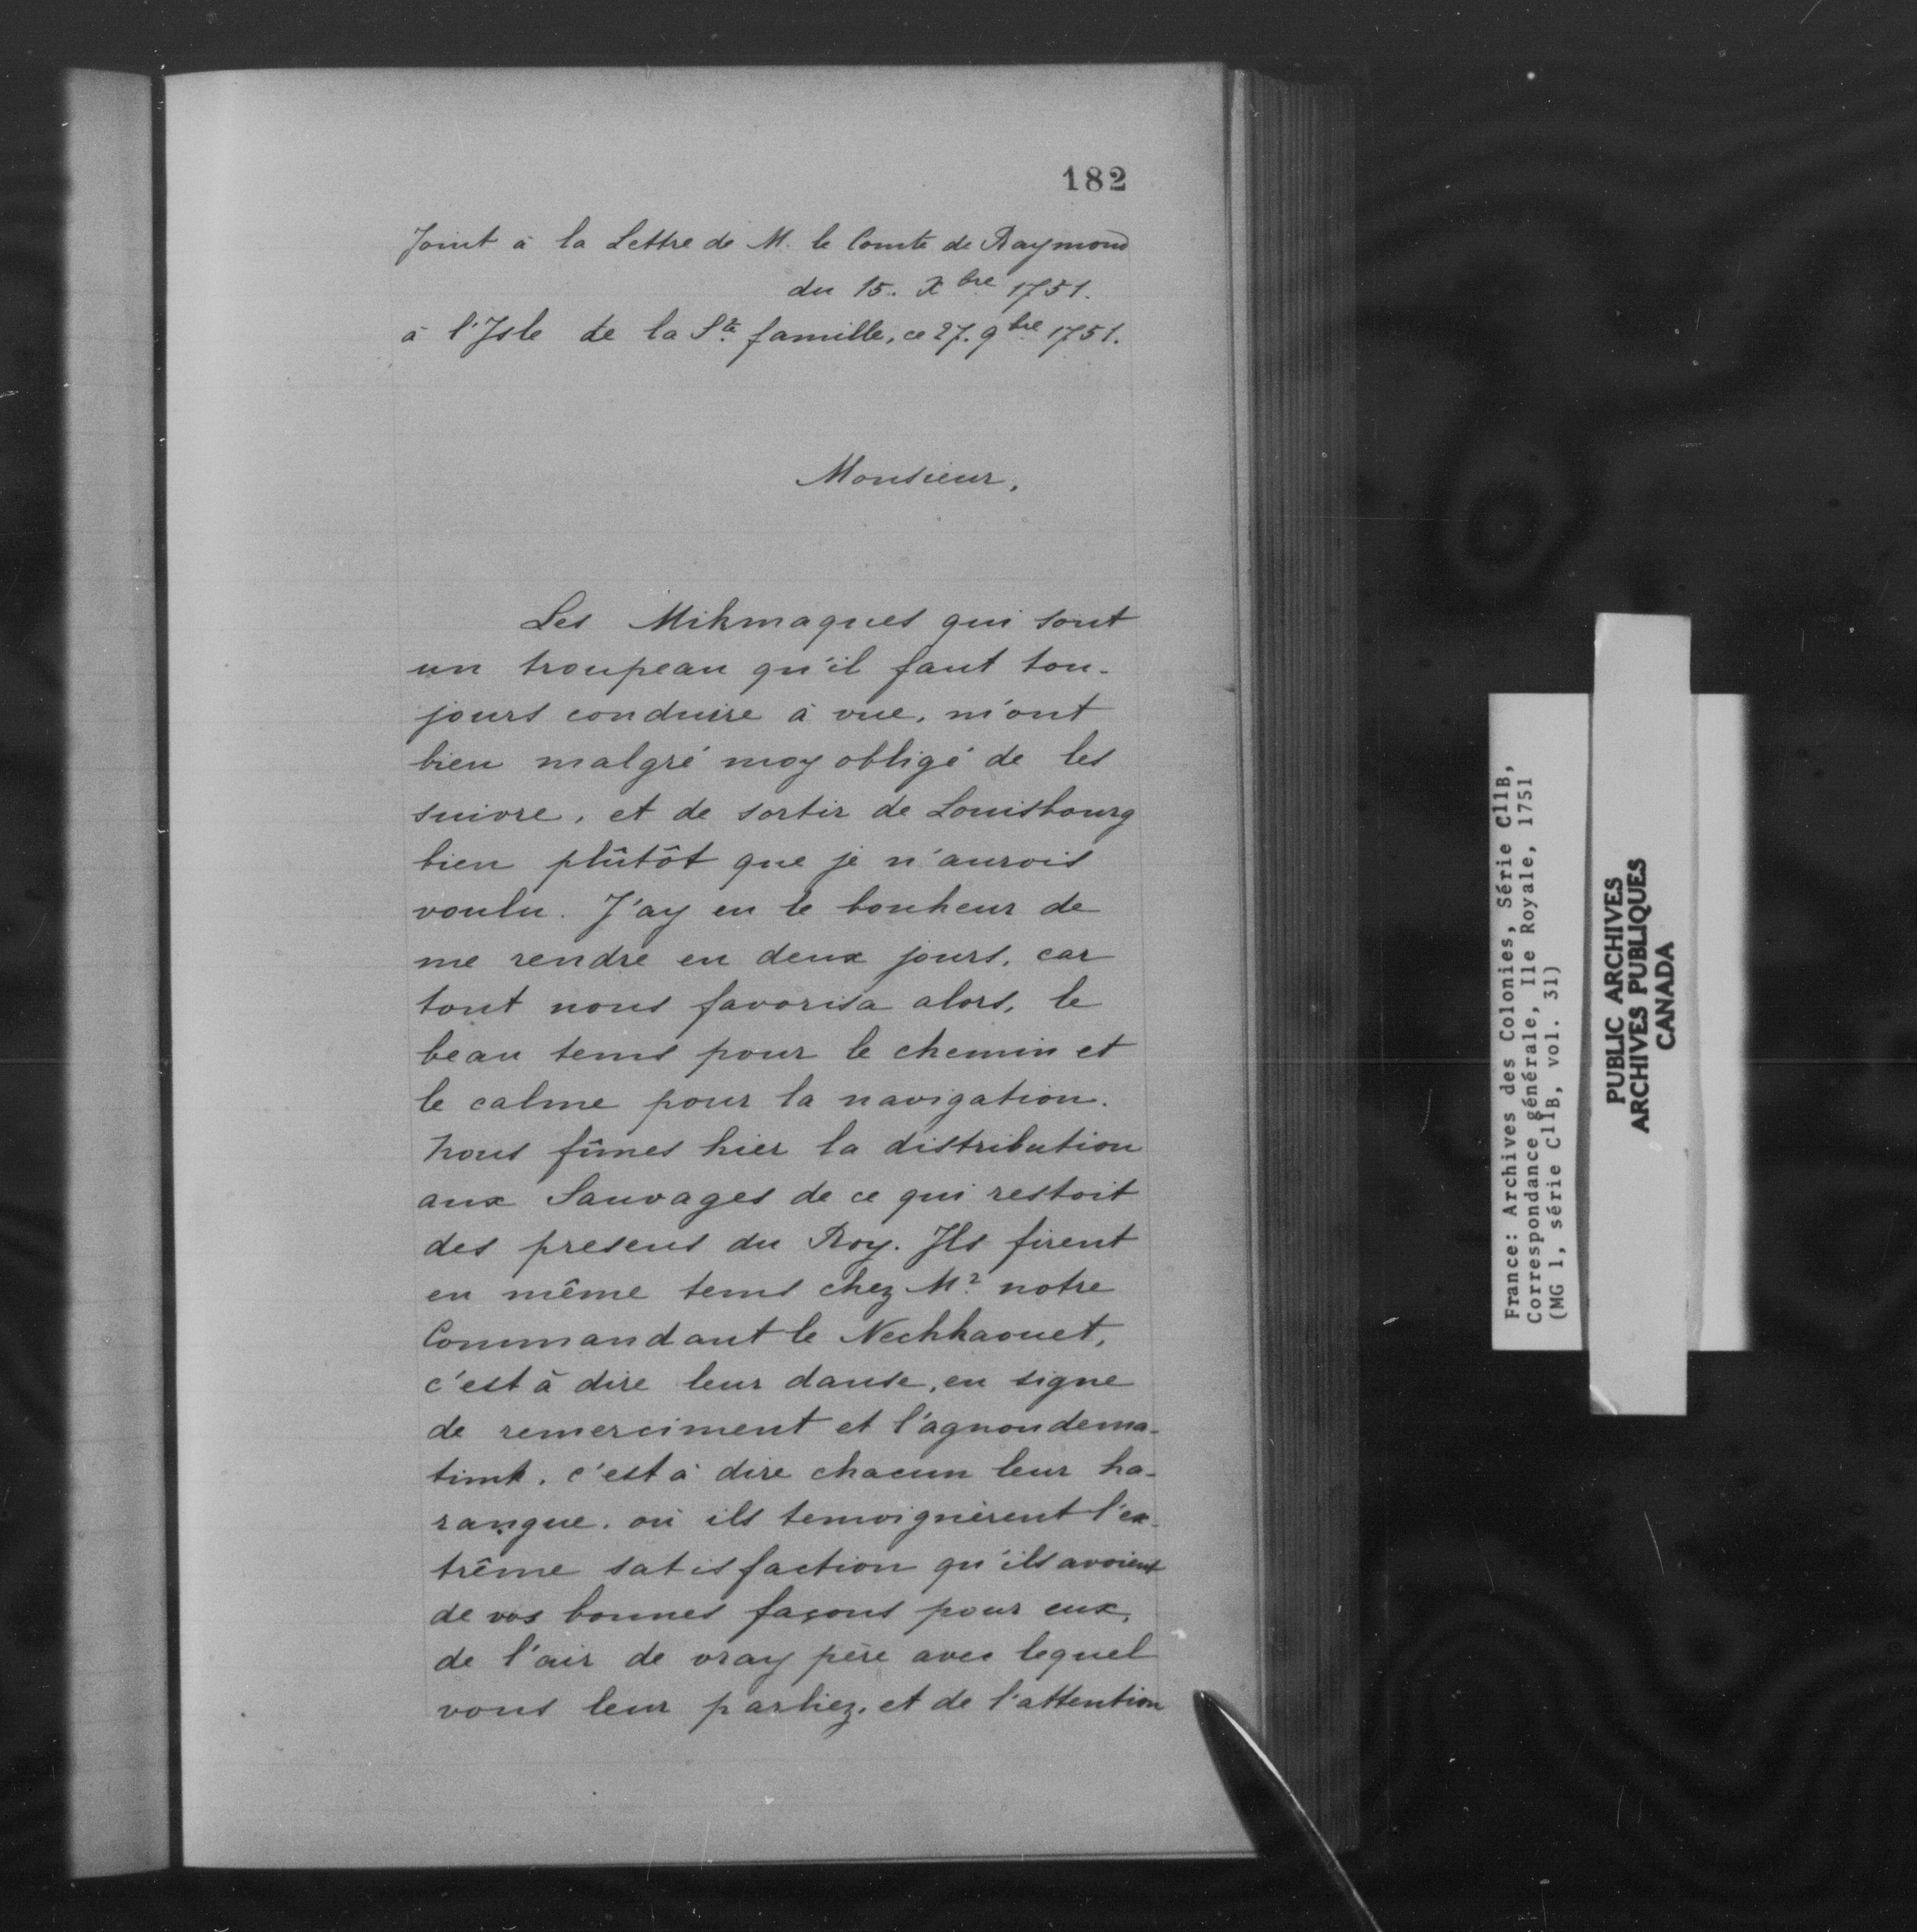 182
Joint à la Lettre de M. le Comte de Raymond
du 15. Xbre 1751.
à l'Isle de la Ste famille, ce 27. 9bre 1751.
Monsieur,
Les Mikmaques qui sont
un troupeau qu'il faut tou-
jours conduire à vue, m'ont
bien malgré moy obligé de les
suivre, et de sortir de Louisbourg
bien plûtôt que je n'aurois
voulu. J'ay eu le bonheur de
me rendre en deux jours, car
tout nous favorisa alors, le
beau tems pour le chemin et
le calme pour la navigation.
Nous fîmes hier la distribution
aux Sauvages de ce qui restoit
des presens du Roy. Ils firent
en même tems chez Mr. notre
Commandant le Nechkaouet,
c'est à dire leur danse, en signe
de remerciment et l'agnoudema-
timk, c'est à dire chacun leur ha-
rangue, où ils temoignèrent l'ex-
trême satisfaction qu'ils avoient
de vos bonnes façons pour eux,
de l'air de vray père avec lequel
vous leur parliez, et de l'attention
France: Archives des Colonies, Série C11B,
Correspondance générale, Ile Royale, 1751
(MG 1, série C11B, vol. 31)
PUBLIC ARCHIVES
ARCHIVES PUBLIQUES
CANADA